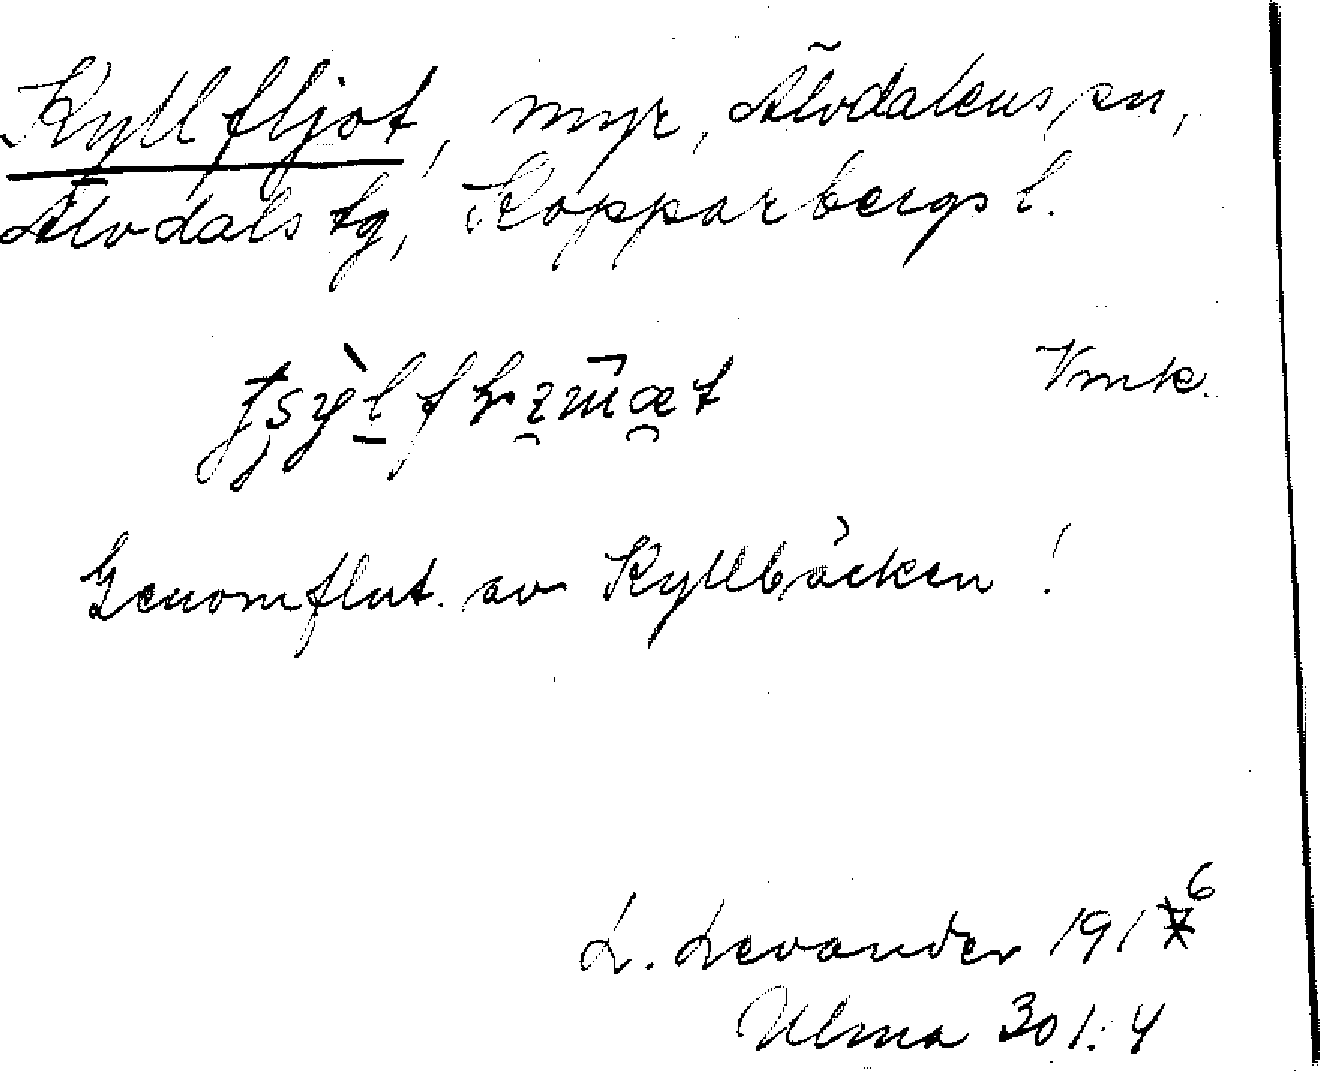 Kyllfljot, myr, Älvdalens sn,
Älvdals tg, Kopparbergs l.
Vmk.
Genomflut. av Kyllbäcken!
L. Levander 1916
Ulma 301:4